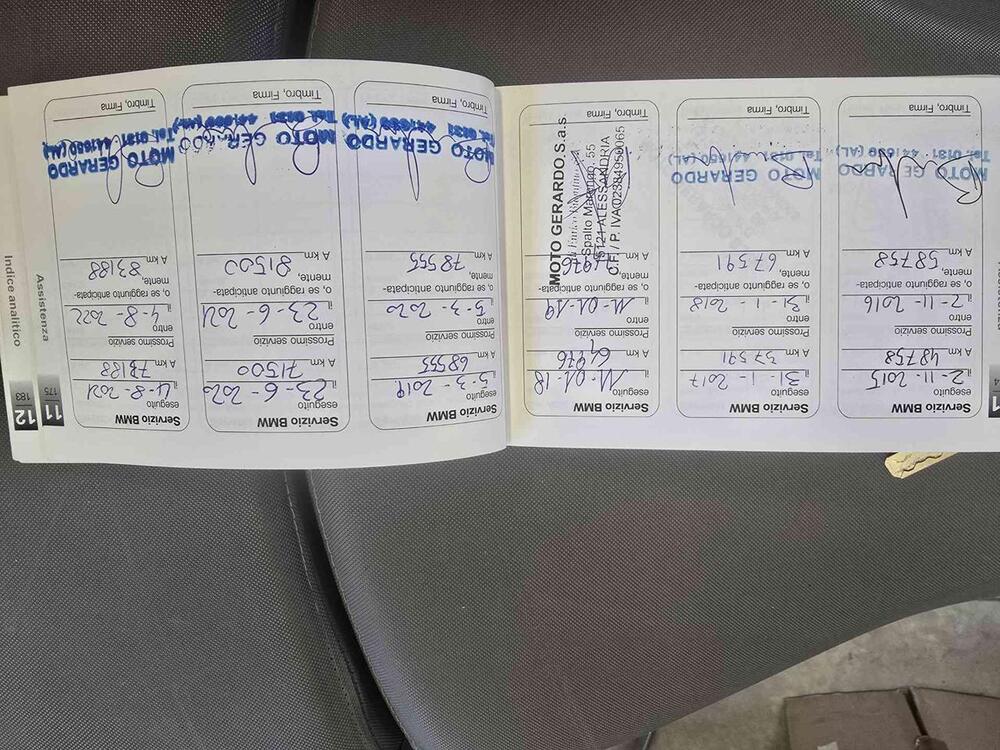 Servizio BMW
eseguito
il 2-11-2015
A km 48758
Prossimo servizio
entro
il 2-11-2016
o, se raggiunto anticipata-
mente,
A km 58758
MOTO GERARDO
Tel. 0131 441650 (AL)
Timbro, Firma
Servizio BMW
eseguito
il 31-1-2017
A km 57591
Prossimo servizio
entro
il 31-1-2018
o, se raggiunto anticipata-
mente,
A km 67591
MOTO GERARDO
Tel. 0131 441650 (AL)
Timbro, Firma
Servizio BMW
eseguito
il 11-01-18
A km
Prossimo servizio
entro
il 11-01-19
o, se raggiunto anticipata-
mente,
A km
MOTO GERARDO S.a.s
Spalto Marengo, 55
15121 ALESSANDRIA
C.F. / P. IVA 02384950065
Timbro, Firma
Servizio BMW
eseguito
il 5-3-2019
A km 68555
Prossimo servizio
entro
il 5-3-2020
o, se raggiunto anticipata-
mente,
A km 78555
MOTO GERARDO
Tel. 0131 441650 (AL)
Timbro, Firma
Servizio BMW
eseguito
il 23-6-2020
A km 71500
Prossimo servizio
entro
il 23-6-2021
o, se raggiunto anticipata-
mente,
A km 81500
MOTO GERARDO
Tel. 0131 441650 (AL)
Timbro, Firma
Servizio BMW
eseguito
il 4-8-2021
A km 73188
Prossimo servizio
entro
il 4-8-2022
o, se raggiunto anticipata-
mente,
A km 83188
MOTO GERARDO
Tel. 0131 441650 (AL)
Timbro, Firma
11
175
Assistenza
12
183
Indice analitico